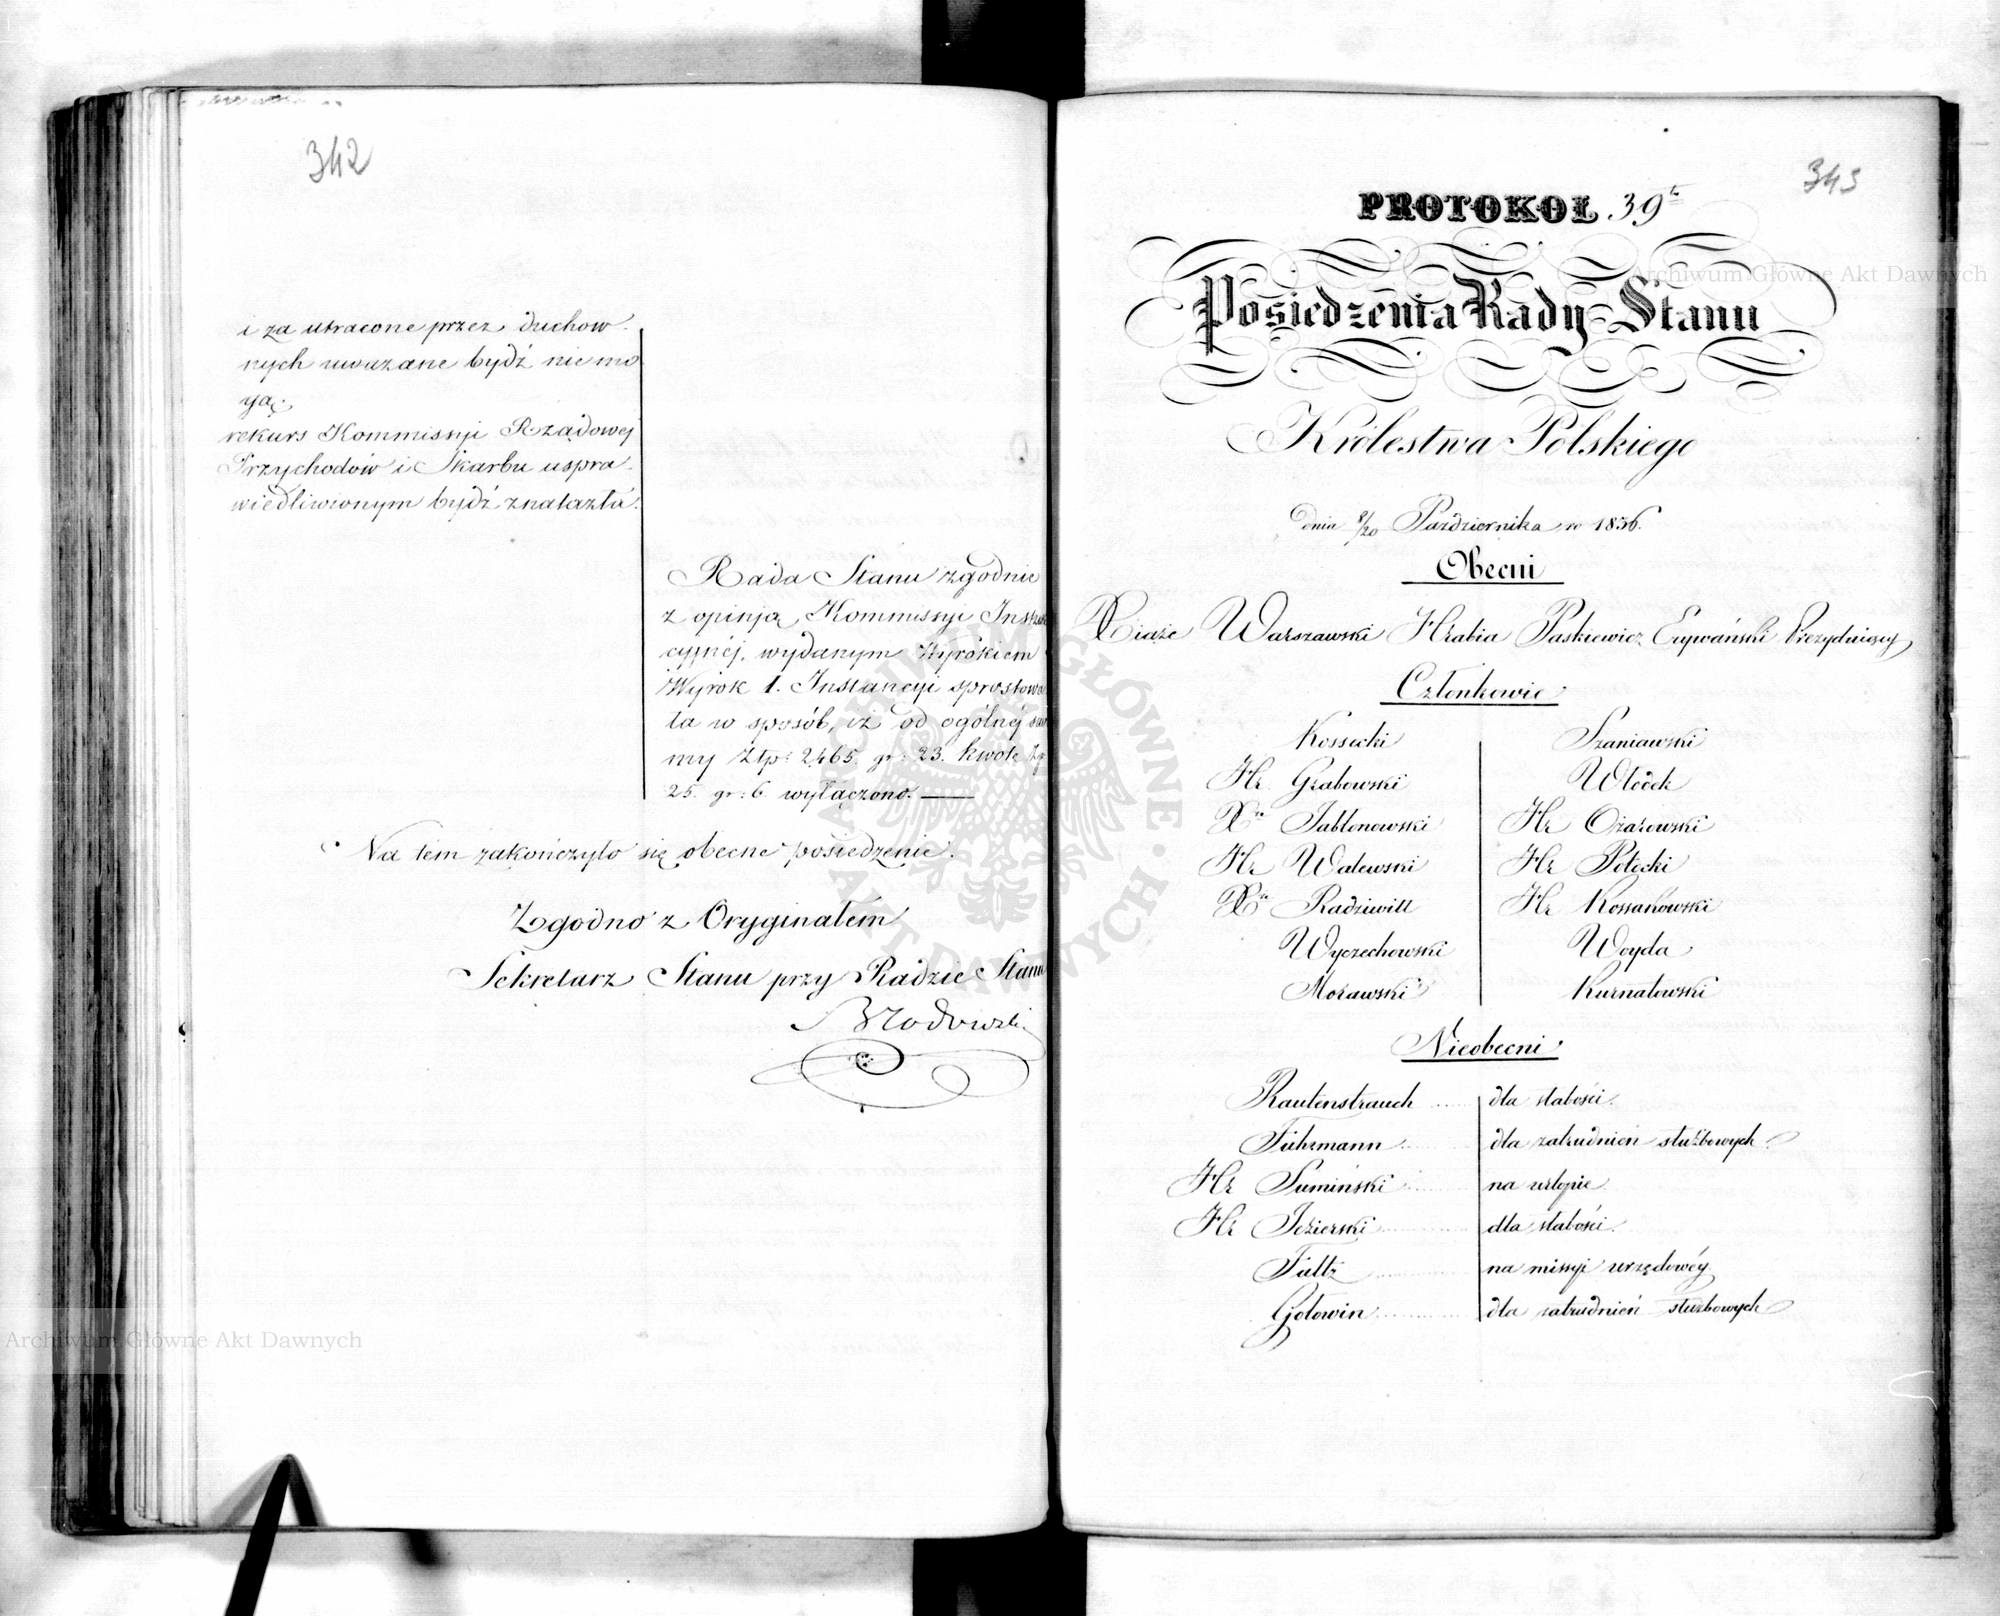 342
i za utracone przez duchow-
nych uważane bydź nie mo
gą.
rekurs Kommissyi Rządowej
Przychodów i Skarbu uspra-
wiedliwionym bydź znalazła.
Rada Stanu zgodnie
z opinją Kommissyi Instruk
cyjnej, wydanym Wyrokiem
Wyrok 1. Instancyi sprostowa
ła w sposób, iż od ogólnej sum
my Złp: 2465. gr: 23. kwotę
25. gr: 6. wyłączono.
Na tem zakończyło się obecne posiedzenie.
Zgodno z Oryginałem
Sekretarz Stanu przy Radzie Stanu
Brodowski
343
PROTOKOŁ 39t
Posiedzenia Rady Stanu
Królestwa Polskiego
dnia 8/20 Października ro 1836.
Obecni
Xiąże Warszawski Hrabia Paskiewicz Erywański Prezydujący
Członkowie
Kossecki Szaniawski
Hr. Grabowski Włoček
Xże Jabłonowski Hr Ożarowski
Hr Walewski Hr Potocki
Xże Radziwiłł Hr Kossakowski
Wyczechowski Woyda
Morawski Kurnatowski
Nieobecni
Rautenstrauch dla słabości.
Führmann dla zatrudnień służbowych
Hr Sumiński na urlopie
Hr Jezierski dla słabości.
Fultz na missyi urzędowéy.
Gołowin dla zatrudnień służbowych
Archiwum Główne Akt Dawnych
Archiwum Główne Akt Dawnych
ARCHIWUM GŁÓWNE AKT DAWNYCH